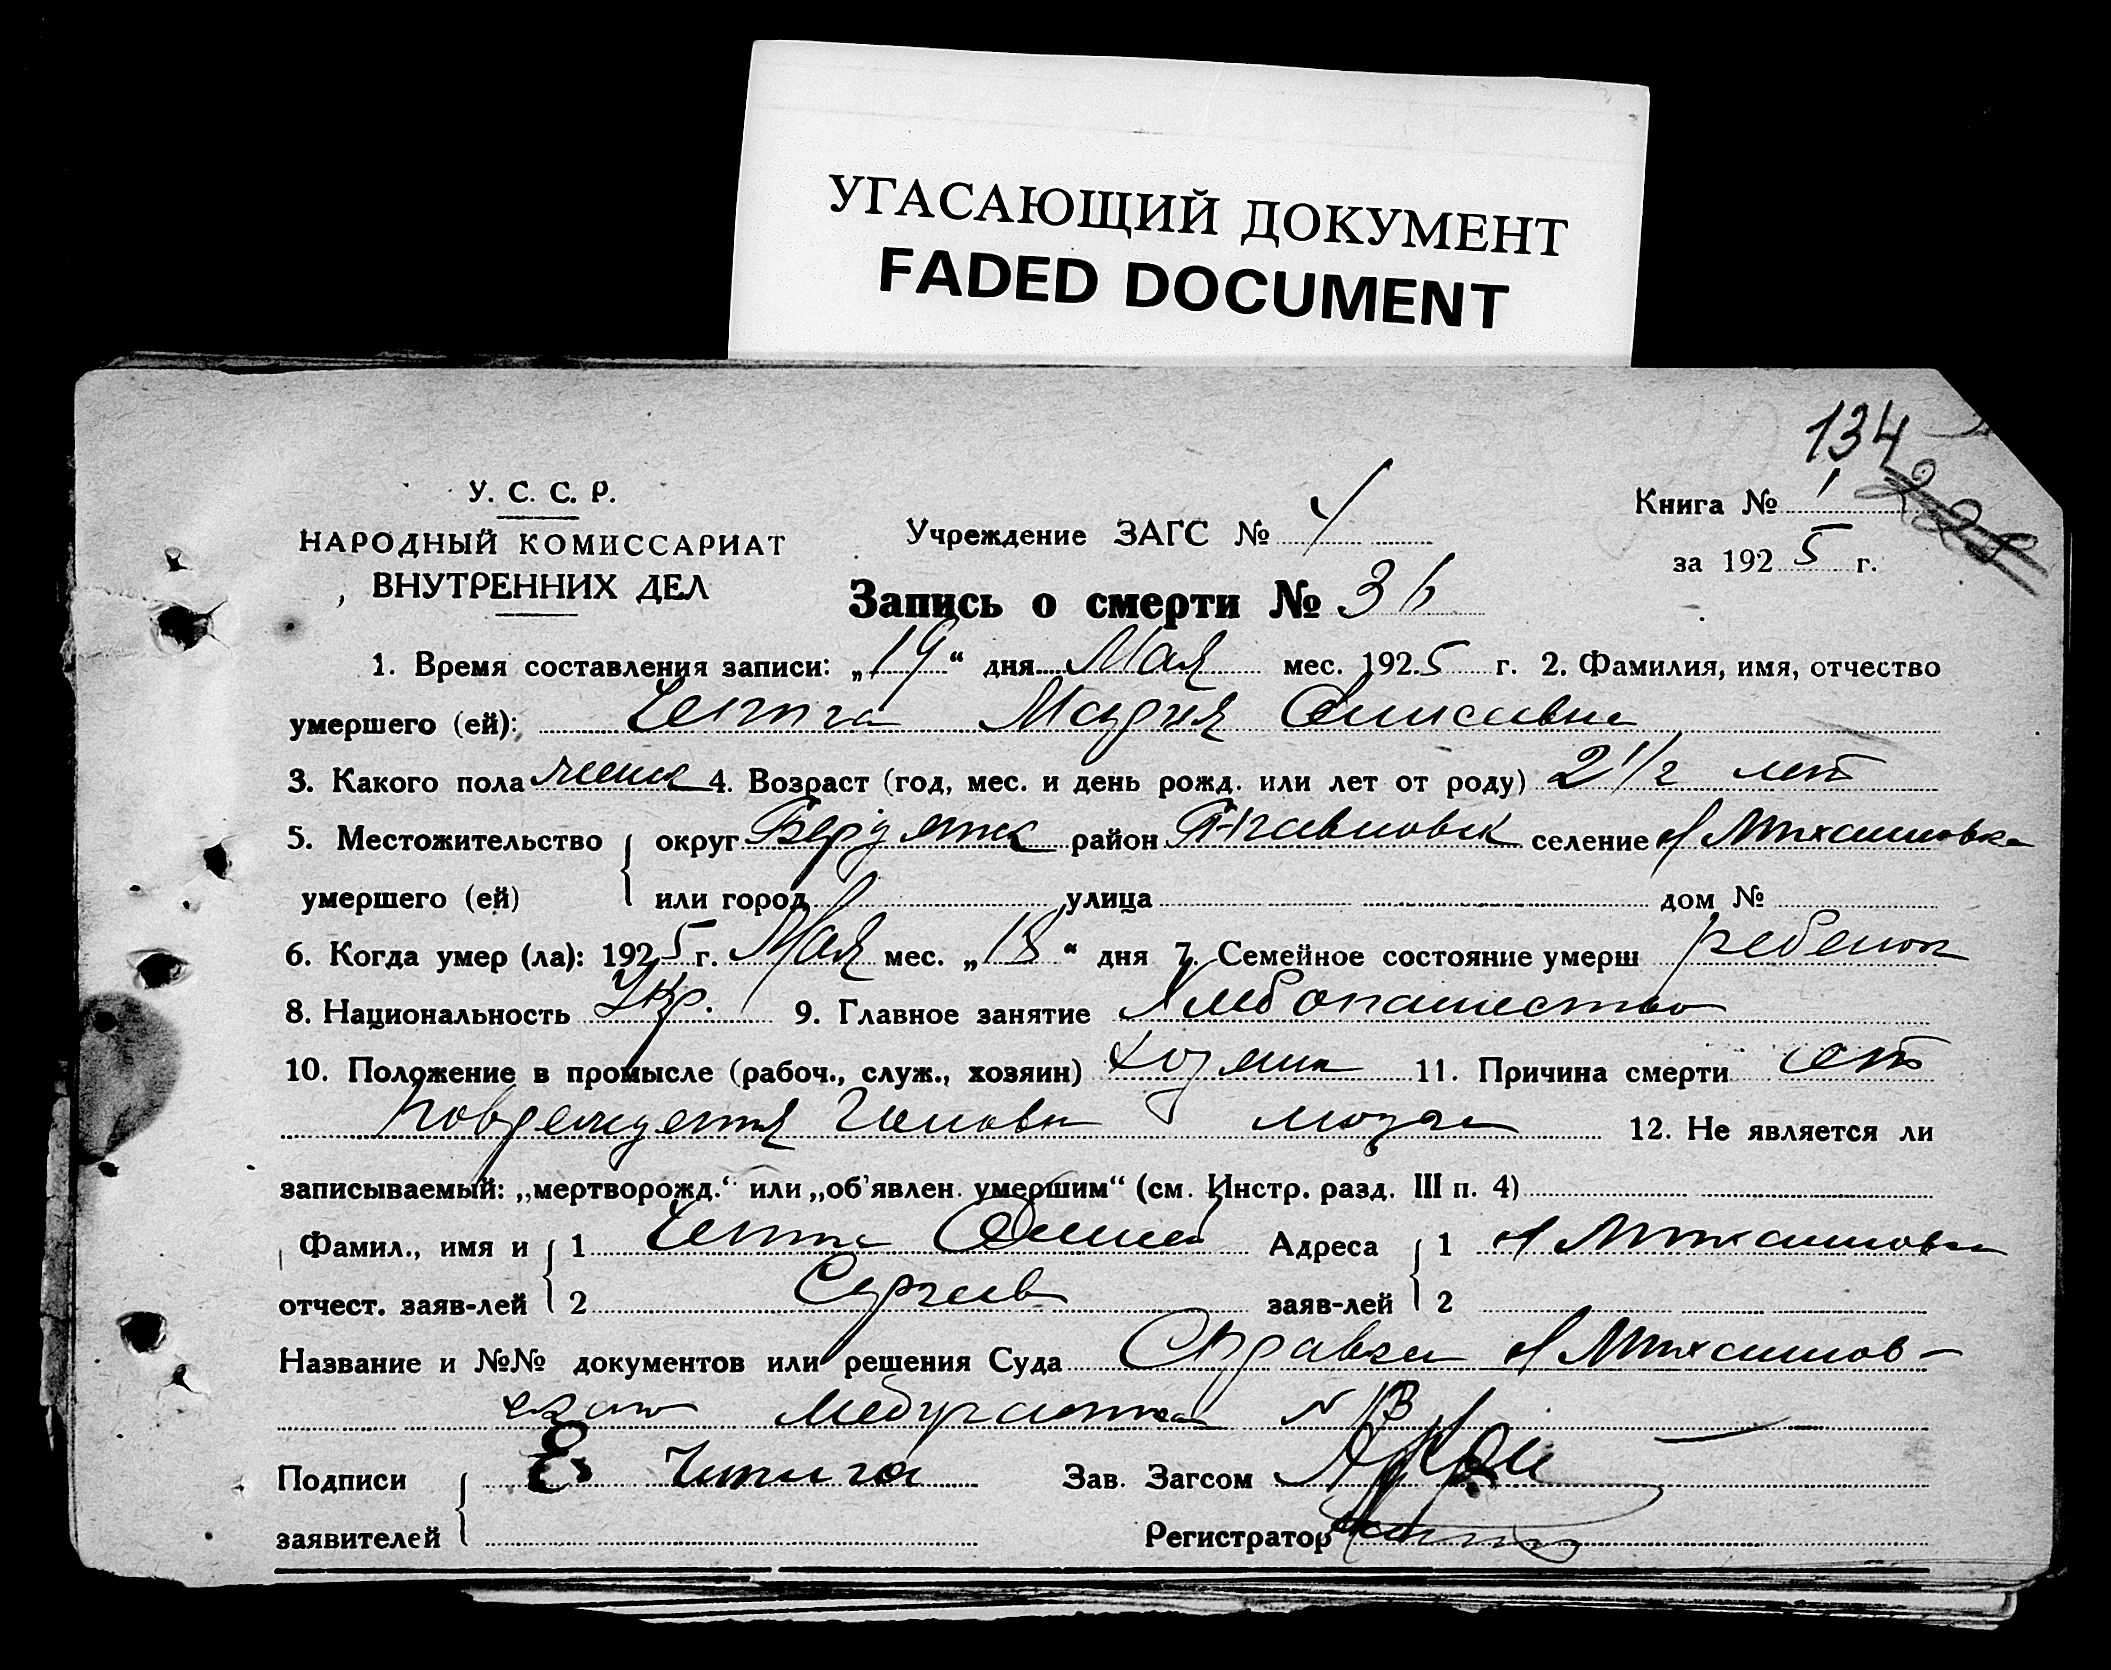 УГАСАЮЩИЙ ДОКУМЕНТ
FADED DOCUMENT
134
У. С. С. Р.
НАРОДНЫЙ КОМИССАРИАТ
ВНУТРЕННИХ ДЕЛ
Учреждение ЗАГС №
Книга № 1
за 1925 г.
Запись о смерти № 36
1. Время составления записи: „19“ дня Мая мес. 1925 г. 2. Фамилия, имя, отчество
умершего (ей): Мария
3. Какого пола женск 4. Возраст (год, мес. и день рожд. или лет от роду) 2 1/2 лет
5. Местожительство округ Бердянск район селение
умершего (ей) или город улица дом №
6. Когда умер (ла): 1925 г. Мая мес. „18“ дня 7. Семейное состояние умерш ребенок
8. Национальность Укр. 9. Главное занятие Хлебопашество
10. Положение в промысле (рабоч., служ., хозяин) хозяин 11. Причина смерти от
повреждения головн мозга 12. Не является ли
записываемый: „мертворожд.“ или „об'явлен. умершим“ (см. Инстр. разд. III п. 4)
Фамил., имя и 1 Адреса 1
отчест. заяв-лей 2 Сергеев заяв-лей 2
Название и №№ документов или решения Суда Справка
медучастка №
Подписи Зав. Загсом
заявителей Регистратор